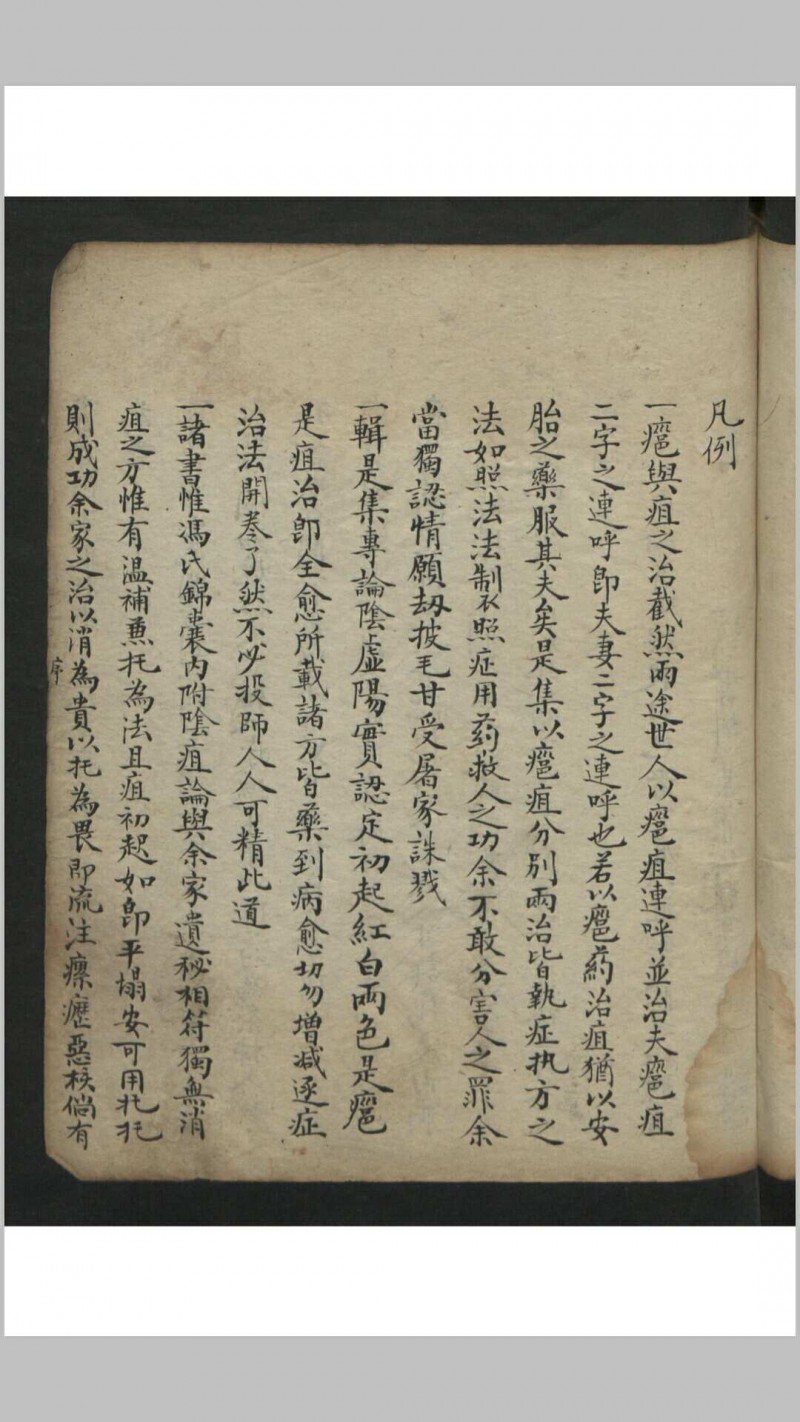 凡例
一癰與疽之治截然兩途世人以癰疽連呼並治夫癰疽
二字之連呼即夫妻二字之連呼也若以癰药治疽猶以安
胎之藥服其夫矣是集以癰疽分別兩治皆執症执方之
法如照法法制照症用药救人之功余不敢分害人之罪余
當獨認情願刼披毛甘受屠家誅戮
一輯是集專論陰虛陽實認定初起紅白兩色是癰
是疽治即全愈所載諸方皆藥到病愈切勿增減逐症
治法開卷了然不必投師人人可精此道
一諸書惟馮氏錦囊內附陰疽論與余家遺秘相符獨無消
疽之方惟有温補兼托為法且疽初起如即平塌安可用托托
則成功余家之治以消為貴以托為畏即流注瘰癧惡核倘有
序